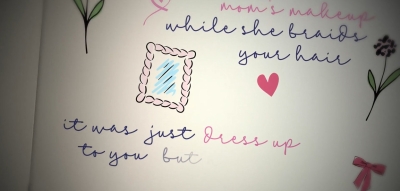 mom's makeup
while she braids
your hair
it was just dress up
to you but